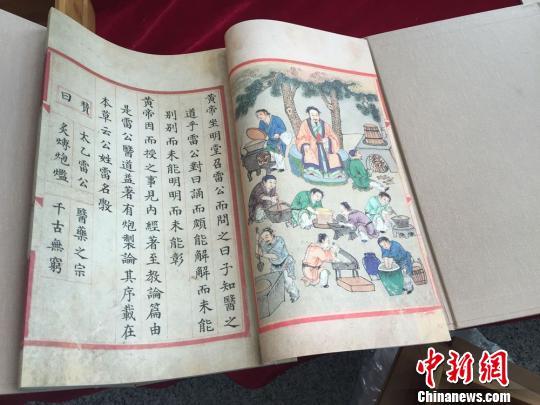 黄帝坐明堂召雷公而問之曰子知醫之
道乎雷公對曰誦而頗能解解而未能
別別而未能明明而未能彰
黄帝因而授之事見内經著至教論篇由
是雷公醫道益著有炮製論其序載在
本草云公姓雷名斆
贊曰
太乙雷公 醫藥之宗
炙煿炮爁 千古無窮
中新网
Chinanews.com